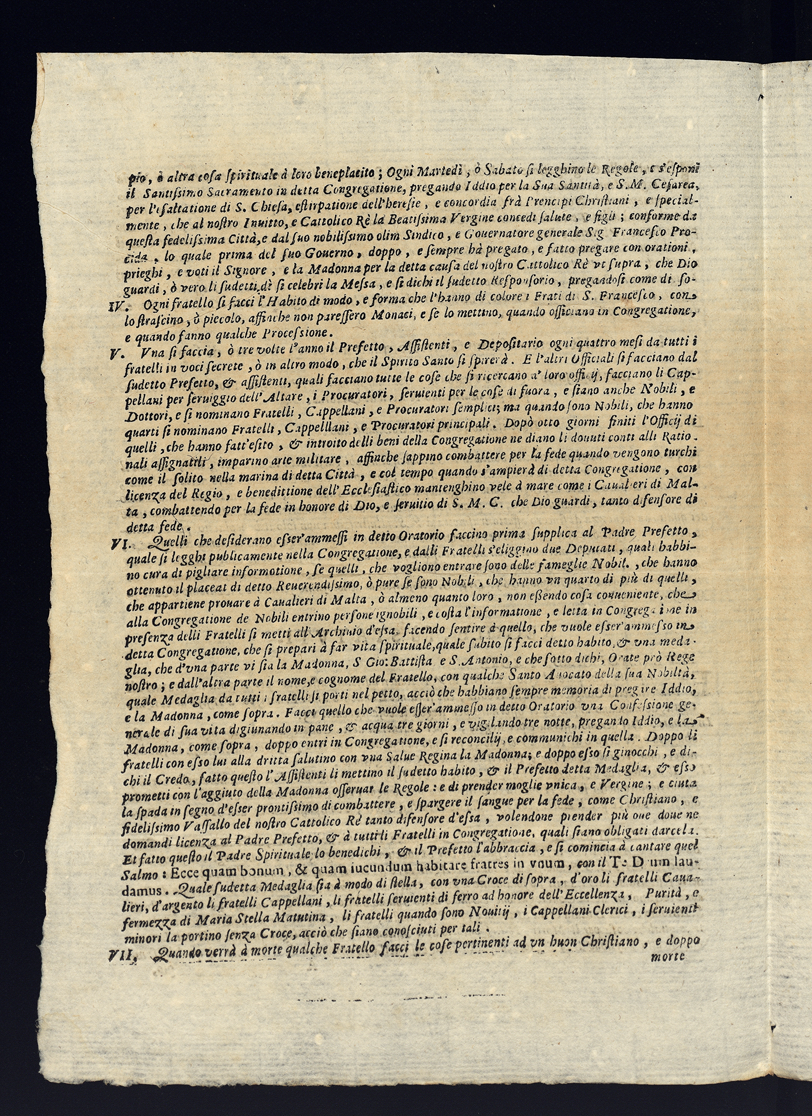 pio, ò altra cosa spirituale à loro beneplacito; Ogni Martedì, ò Sabato si legghino le Regole, e s'esponi
il Santissimo Sacramento in detta Congregatione, pregando Iddio per la Sua Santità, e S.M. Cesarea,
per l'esaltatione di S. Chiesa, estirpatione dell'heresie, e concordia frà Prencipi Christiani, e special-
mente, che al nostro Inuitto, e Cattolico Rè la Beatissima Vergine concedi salute, e figli; conforme da
questa fedelissima Città, e dal suo nobilissimo olim Sindico, e Gouernatore generale Sig. Francesco Pro-
cida, lo quale prima del suo Gouerno, doppo, e sempre hà pregato, e fatto pregare con orationi,
prieghi, e voti il Signore, e la Madonna per la detta causa del nostro Cattolico Rè vt supra, che Dio
guardi, ò vero li sudetti dì si celebri la Messa, e si dichi il sudetto Responsorio, pregandosi come di so-
IV. Ogni fratello si facci l'Habito di modo, e forma che l'hanno di colore i Frati di S. Francesco, con
lo strascino, ò piccolo, affinche non paressero Monaci, e se lo mettino, quando officiano in Congregatione,
e quando fanno qualche Processione.
V. Vna si faccia, ò tre volte l'anno il Prefetto, Assistenti, e Depositario ogni quattro mesi da tutti i
fratelli in voci secrete, ò in altro modo, che il Spirito Santo si spirerà. E l'altri Officiali si facciano dal
sudetto Prefetto, & assistenti, quali facciano tutte le cose che si ricercano a' loro officij, facciano li Cap-
pellani per seruiggio dell'Altare, i Procuratori, seruienti per le cose di fuora, e siano anche Nobili, e
Dottori, e si nominano Fratelli, Cappellani, e Procuratori semplici; ma quando sono Nobili, che hanno
quarti si nominano Fratelli, Cappelllani, e Procuratori principali. Dopò otto giorni finiti l'Officij di
quelli, che hanno fatt'esito, & introito delli beni della Congregatione ne diano li douuti conti alli Ratio-
nali assignatili, imparino arte militare, affinche sappino combattere per la fede quando vengono turchi
come il solito nella marina di detta Città, e col tempo quando s'ampierà di detta Congregatione, con
licenza del Regio, e benedittione dell'Ecclesiastico mantenghino vele à mare come i Caualieri di Mal-
ta, combattendo per la fede in honore di Dio, e seruitio di S. M. C. che Dio guardi, tanto difensore di
detta fede.
VI. Quelli che desiderano esser'ammessi in detto Oratorio faccino prima supplica al Padre Prefetto,
quale si legghi publicamente nella Congregatione, e dalli Fratelli s'eliggino due Deputati, quali habbi-
no cura di pigliare informotione, se quelli, che vogliono entrare sono delle fameglie Nobili, che hanno
ottenuto il placeat di detto Reuerendissimo, ò pure se sono Nobili, che hanno vn quarto di più di quelli,
che appartiene prouare à Caualieri di Malta, ò almeno quanto loro, non essendo cosa conueniente, che
alla Congregatione de Nobili entrino persone ignobili, e costa l'informatione, e letta in Congregatione in
presenza delli Fratelli si metti all'Archiuio d'essa, facendo sentire à quello, che vuole esser'ammesso in
detta Congregatione, che si prepari à far vita spirituale, quale subito si facci detto habito, & vna meda-
glia, che d'vna parte vi sia la Madonna, S Gio: Battista e S. Antonio, e che sotto dichi, Orate prò Rege
nostro; e dall'altra parte il nome, e cognome del Fratello, con qualche Santo Auocato della sua Nobiltà,
quale Medaglia da tutti i fratelli si porti nel petto, acciò che habbiano sempre memoria di pregare Iddio,
e la Madonna, come sopra. Facci quello che vuole esser'ammesso in detto Oratorio vna Confessione ge-
nerale di sua vita digiunando in pane, & acqua tre giorni, e vigilando tre notte, pregando Iddio, e la
Madonna, come sopra, doppo entri in Congregatione, e si reconcilij, e communichi in quella. Doppo li
fratelli con esso lui alla dritta salutino con vna Salue Regina la Madonna; e doppo esso si ginocchi, e di-
chi il Credo, fatto questo l'Assistenti li mettino il sudetto habito, & il Prefetto detta Medaglia, & esso
prometti con l'aggiuto della Madonna osseruar le Regole: e di prender moglie vnica, e Vergine; e ciuta
la spada in segno d'esser prontissimo di combattere, e spargere il sangue per la fede, come Christiano, e
fidelissimo Vassallo del nostro Cattolico Rè tanto difensore d'essa, volendone piender più oue doue ne
domandi licenza al Padre Prefetto, & à tutti li Fratelli in Congregatione, quali siano obligati darcela.
Et fatto questo il Padre Spirituale lo benedichi, & il Prefetto l'abbraccia, e si comincia à cantare quel
Salmo: Ecce quam bonum, & quam iucundum habitare fratres in vnum, con il Te Deum lau-
damus. Quale sudetta Medaglia sia à modo di stella, con vna Croce di sopra, d'oro li fratelli Caua-
lieri, d'argento li fratelli Cappellani, li fratelli seruienti di ferro ad honore dell'Eccellenza, Purità, e
fermezza di Maria Stella Matutina, li fratelli quando sono Nouitij, i Cappellani Clerici, i seruienti
minori la portino senza Croce, acciò che siano conosciuti per tali.
VII. Quando verrà à morte qualche Fratello facci le cose pertinenti ad vn buon Christiano, e doppo
morte